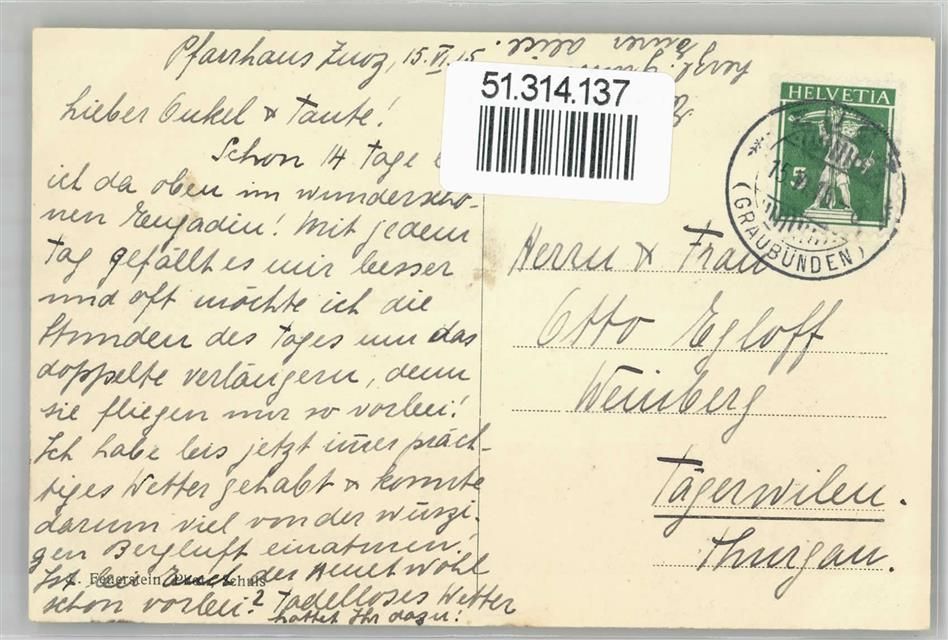 Pfarrhaus Zuoz, 15. VI. 15.
Lieber Onkel & Tante!
Schon 14 Tage
ich da oben im wunderschö-
nen Engadin! Mit jedem
Tag gefällt es mir besser
und oft möchte ich die
Stunden des Tages um das
doppelte verlängern, denn
sie fliegen nur so vorbei!
Ich habe bis jetzt imer präch-
tiges Wetter gehabt & konnte
darum viel von der würzi-
gen Bergluft einatmen.
Ist bei Euch der Heuet wohl
schon vorbei? Tadelloses Wetter
hattet Ihr dazu!
herzl.
Eurer Alice.
Feuerstein, Schuls
51.314.137
HELVETIA
5
(GRAUBÜNDEN)
Herrn & Frau
Otto Egloff
Weinberg
Tägerwilen.
Thurgau.